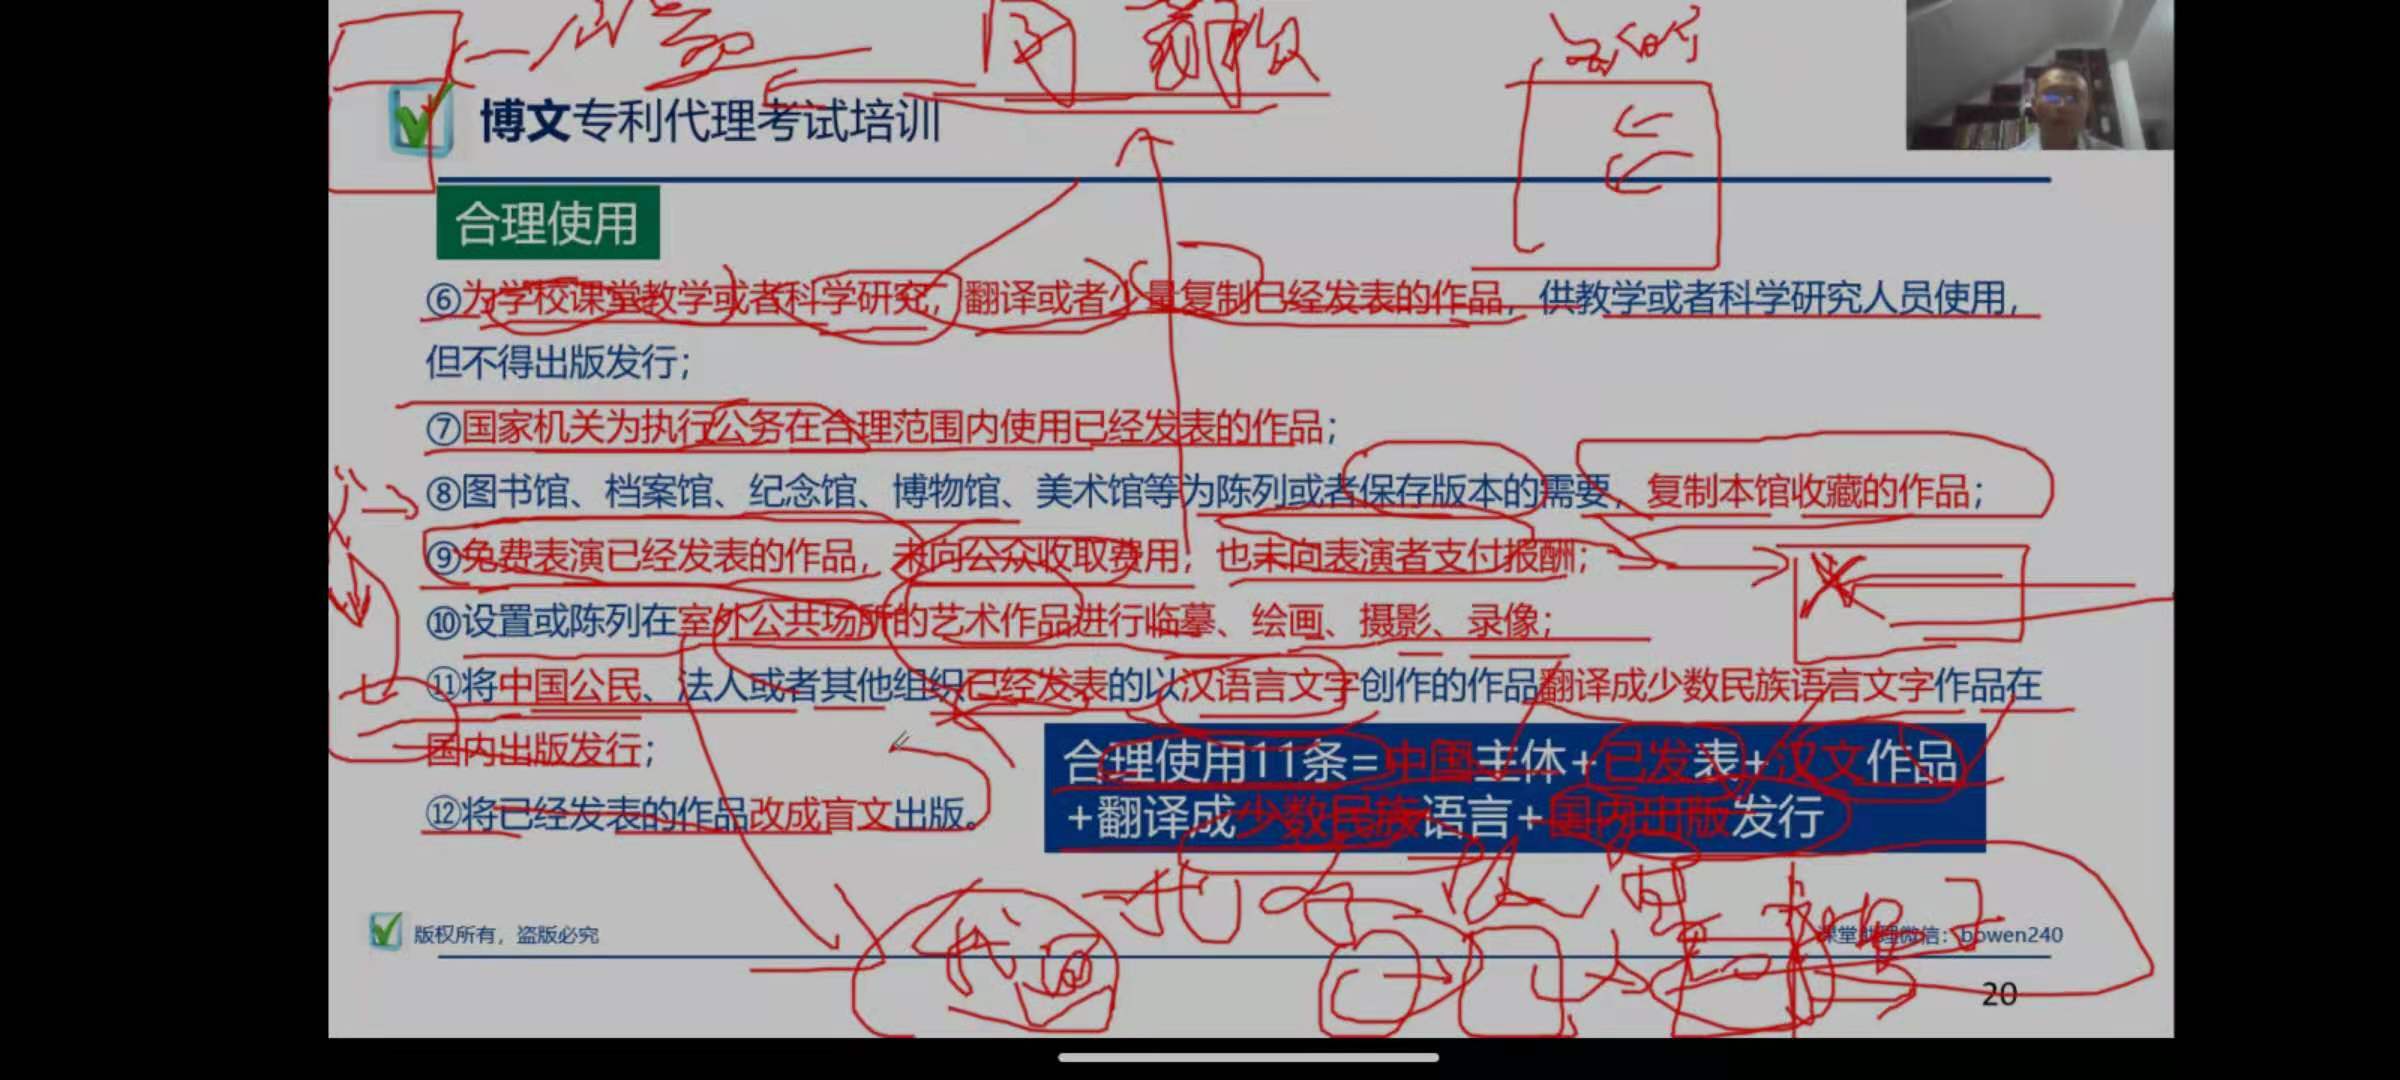 博文专利代理考试培训
合理使用
⑥为学校课堂教学或者科学研究，翻译或者少量复制已经发表的作品，供教学或者科学研究人员使用，
但不得出版发行；
⑦国家机关为执行公务在合理范围内使用已经发表的作品；
⑧图书馆、档案馆、纪念馆、博物馆、美术馆等为陈列或者保存版本的需要，复制本馆收藏的作品；
⑨免费表演已经发表的作品，未向公众收取费用，也未向表演者支付报酬；
⑩设置或陈列在室外公共场所的艺术作品进行临摹、绘画、摄影、录像；
⑪将中国公民、法人或者其他组织已经发表的以汉语言文字创作的作品翻译成少数民族语言文字作品在
国内出版发行；
⑫将已经发表的作品改成盲文出版。
合理使用11条=中国主体+已发表+汉文作品
+翻译成少数民族语言+国内出版发行
版权所有，盗版必究
课堂助理微信：bowen240
20